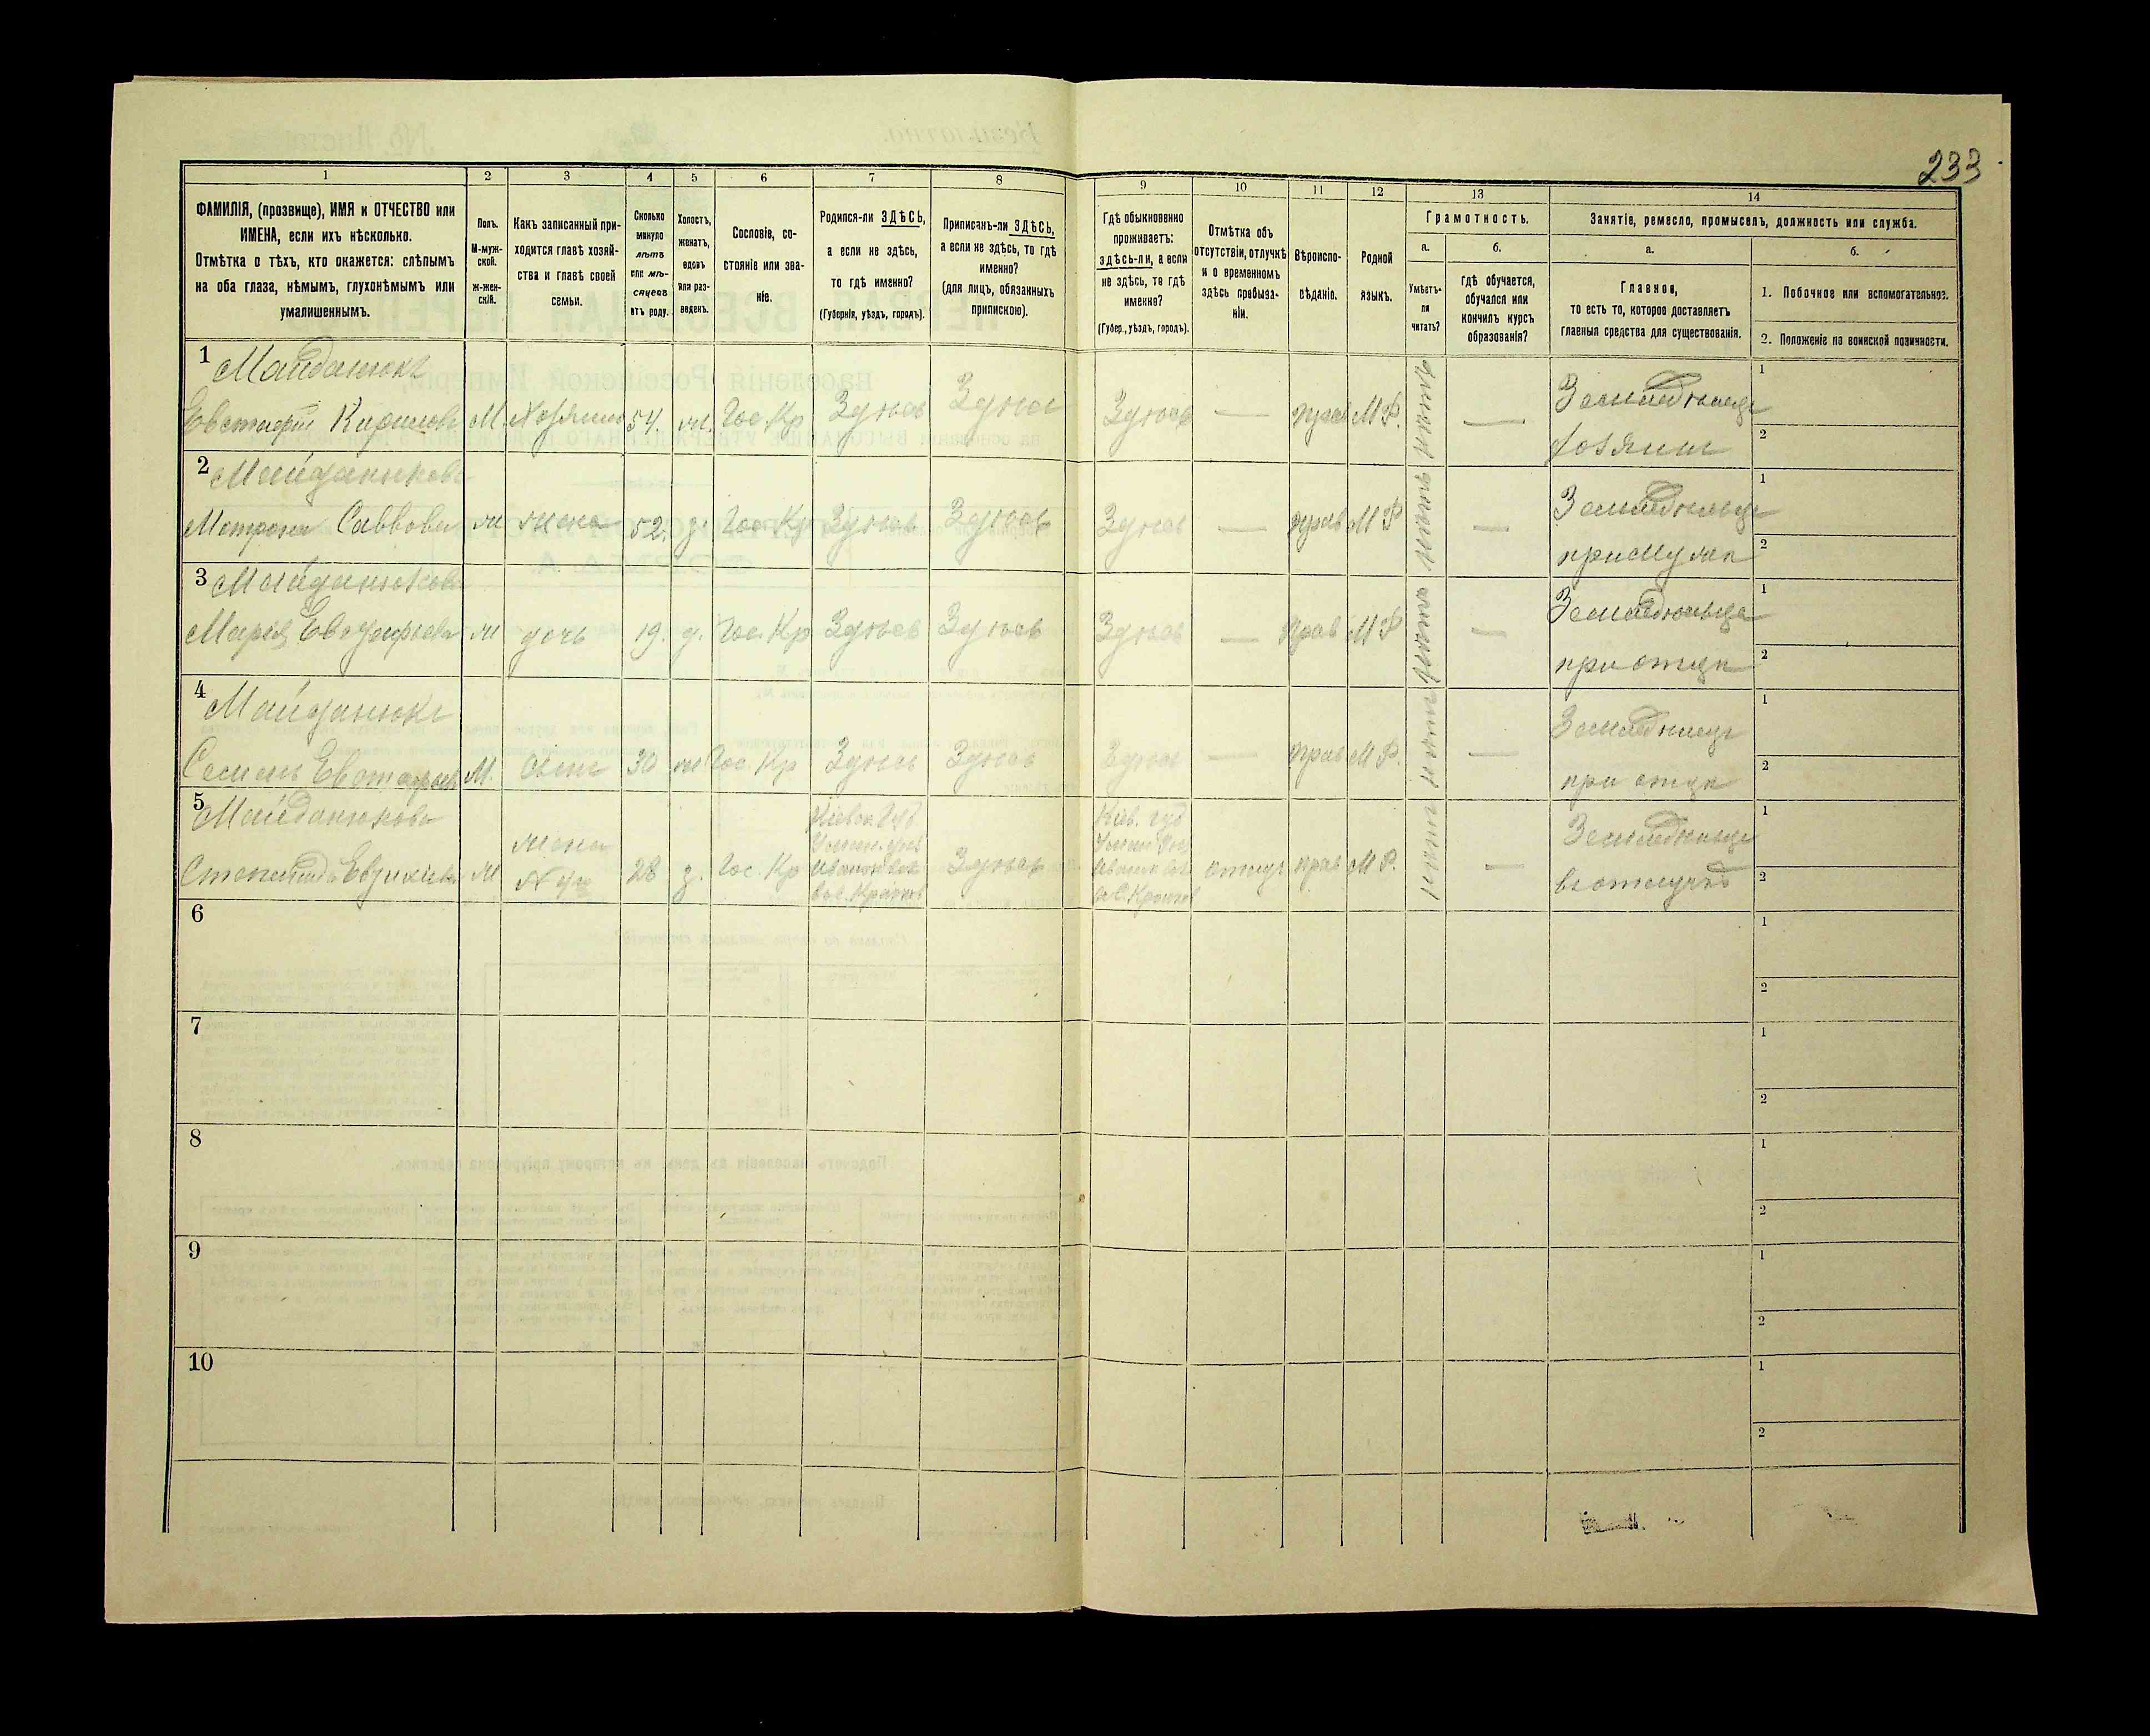 233
1 2 3 4 5 6 7 8 9 10 11 12 13 14
ФАМИЛІЯ, (прозвище), ИМЯ и ОТЧЕСТВО или
ИМЕНА, если ихъ нѣсколько.
Отмѣтка о тѣхъ, кто окажется: слѣпымъ
на оба глаза, нѣмымъ, глухонѣмымъ или
умалишеннымъ.
Полъ.
М-муж-
ской.
ж-жен-
скій.
Какъ записанный при-
ходится главѣ хозяй-
ства и главѣ своей
семьи.
Сколько
минуло
лѣтъ
или мѣ-
сяцевъ
отъ роду.
Холостъ,
женатъ,
вдовъ
или раз-
веденъ.
Сословіе, со-
стояніе или зва-
ніе.
Родился-ли ЗДѢСЬ,
а если не здѣсь,
то гдѣ именно?
(Губернія, уѣздъ, городъ).
Приписанъ-ли ЗДѢСЬ,
а если не здѣсь, то гдѣ
именно?
(для лицъ, обязанныхъ
припискою).
Гдѣ обыкновенно
проживаетъ:
здѣсь-ли, а если
не здѣсь, то гдѣ
именно?
(Губер., уѣздъ, городъ).
Отмѣтка объ
отсутствіи, отлучкѣ
и о временномъ
здѣсь пребыва-
ніи.
Вѣроиспо-
вѣданіе.
Родной
языкъ.
Грамотность.
а.
Умѣетъ-
ли
читать?
б.
Гдѣ обучается,
обучался или
кончилъ курсъ
образованія?
Занятіе, ремесло, промыселъ, должность или служба.
а.
Главное,
то есть то, которое доставляетъ
главныя средства для существованія.
б.
1. Побочное или вспомогательное.
2. Положеніе по воинской повинности.
1 Майданюкъ
Евстафій Кирилов М. Хозяинъ 54. ж. Гос. Кр Здѣсь Здѣсь Здѣсь — прав М Р. нѣтъ — Земледѣлецъ
хозяинъ
1
2
2 Майданюкова
Матрона Саввова ж жена 52. з. Гос. Кр Здѣсь Здѣсь Здѣсь — прав М Р нѣтъ — Земледѣльца
при мужѣ
1
2
3 Майданюкова
Марія Евстафіева ж дочь 19. д. Гос. Кр Здѣсь Здѣсь Здѣсь — прав М Р нѣтъ — Земледѣльца
при отцѣ
1
2
4 Майданюкъ
Семенъ Евстафіевъ М. сынъ 30 ж Гос. Кр Здѣсь Здѣсь Здѣсь — прав М Р. нѣтъ — Земледѣлецъ
при отцѣ
1
2
5 Майданюкова
ж жена
N 4го 28 з. Гос. Кр Здѣсь прав М Р. нѣтъ — Земледѣльца
въ отлучкѣ
1
2
6
1
2
7
1
2
8
1
2
9
1
2
10
1
2